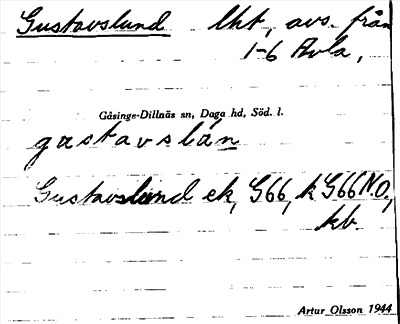 Gustavslund lht, avs. från
1-6 Avla,
Gåsinge-Dillnäs sn, Daga hd, Söd. l.
gastavslán
Gustavslund ek, G66, k G66 N.O.,
kb.
Artur Olsson 1944